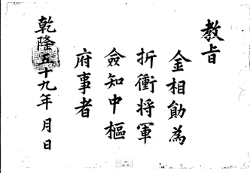 教旨
金相勛為
折衝将軍
僉知中樞
府事者
乾隆五十九年 月 日